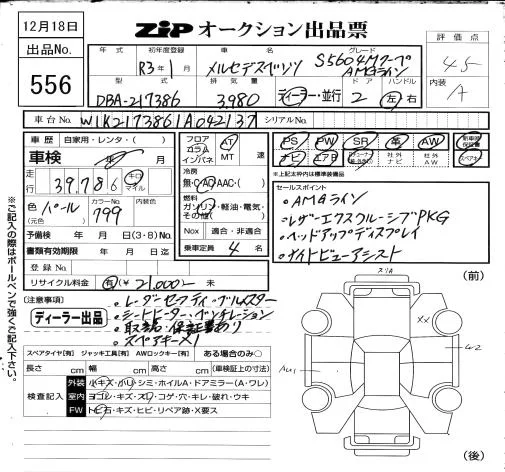 12月18日
出品No.
556
ZiP オークション出品票
評価点
4.5
内装
A
年式
初年度登録
R3年1月
車名
メルセデスベンツ
グレード
S560 4Mクーペ
AMGライン
型式
DBA-217386
排気量
3,980
ディーラー・並行
ドア
2
ハンドル
左・右
車台No.
W1K2173861A042137
シリアルNo.
車歴 自家用・レンタ・( )
車検 年 月
走行 39,786 キロ マイル
色(元色) パール
カラーNo. 799
内装色
予備検 年 月 日(3・8)No.
書類有効期限 年 月 日
登録No.
リサイクル料金 有(¥ 21,000 -
フロア
コラム
インパネ
AT
MT
速
冷房
無・AC・AAC・( )
燃料
ガソリン・軽油・電気・
その他( )
Nox 適合・非適合
乗車定員 4 名
PS PW SR 革 AW 新車時保証書
ナビ エアB 社外ナビ 社外AW スペアキー
※上記太枠内は標準装備品
セールスポイント
・AMGライン
・レザーエクスクルーシブPKG
・ヘッドアップディスプレイ
・ナイトビューアシスト
注意事項
ディーラー出品
・レーダーセーフティ・ブルメスター
・シートヒーター・ベンチレーション
・取説・保証書あり
・スペアキー×1
スペアタイヤ[有] ジャッキ工具[有] AWロックキー[有] ある場合のみ○
長さ cm 幅 cm 高さ cm (車検証上の寸法)
検査記入
外装 小キズ・小凹・シミ・ホイルA・ドアミラー(A・ワレ)
室内 ヨゴレ・キズ・スリ・コゲ・穴・キレ・破れ・ウキ
FW トビ石・キズ・ヒビ・リペア跡・X要ス
※ご記入の際はボールペンで強くご記入下さい。
(前)
スリA
XX
W2
AW1
(後)